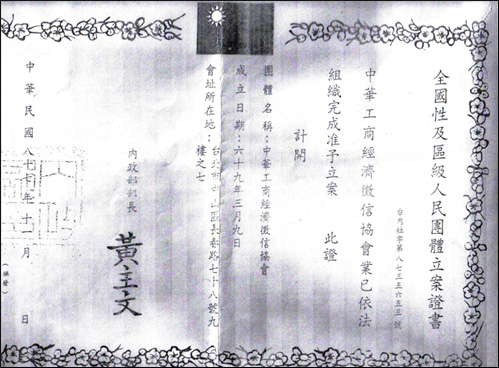 全國性及區級人民團體立案證書
台內社字第八七三五六五三號
中華工商經濟徵信協會業已依法
組織完成准予立案　此證
計開
團體名稱：中華工商經濟徵信協會
成立日期：六十九年三月九日
會址所在地：台北市中山區長春路七十八號九
樓之七
內政部部長
黃主文
中華民國八十七年十一月　日